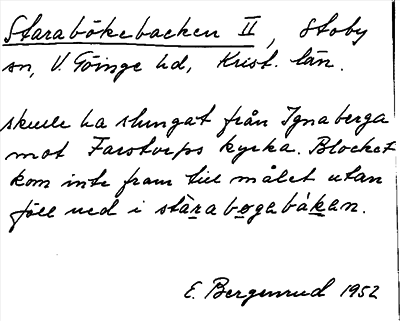 Starabökebacken II, Stoby
sn, V. Göinge hd, Krist. län.
skulle ha slungat från Ignaberga
mot Farstorps kyrka. Blocket
kom inte fram till målet utan
föll ned i stàrabøgabákan.
E. Bergenrud 1952